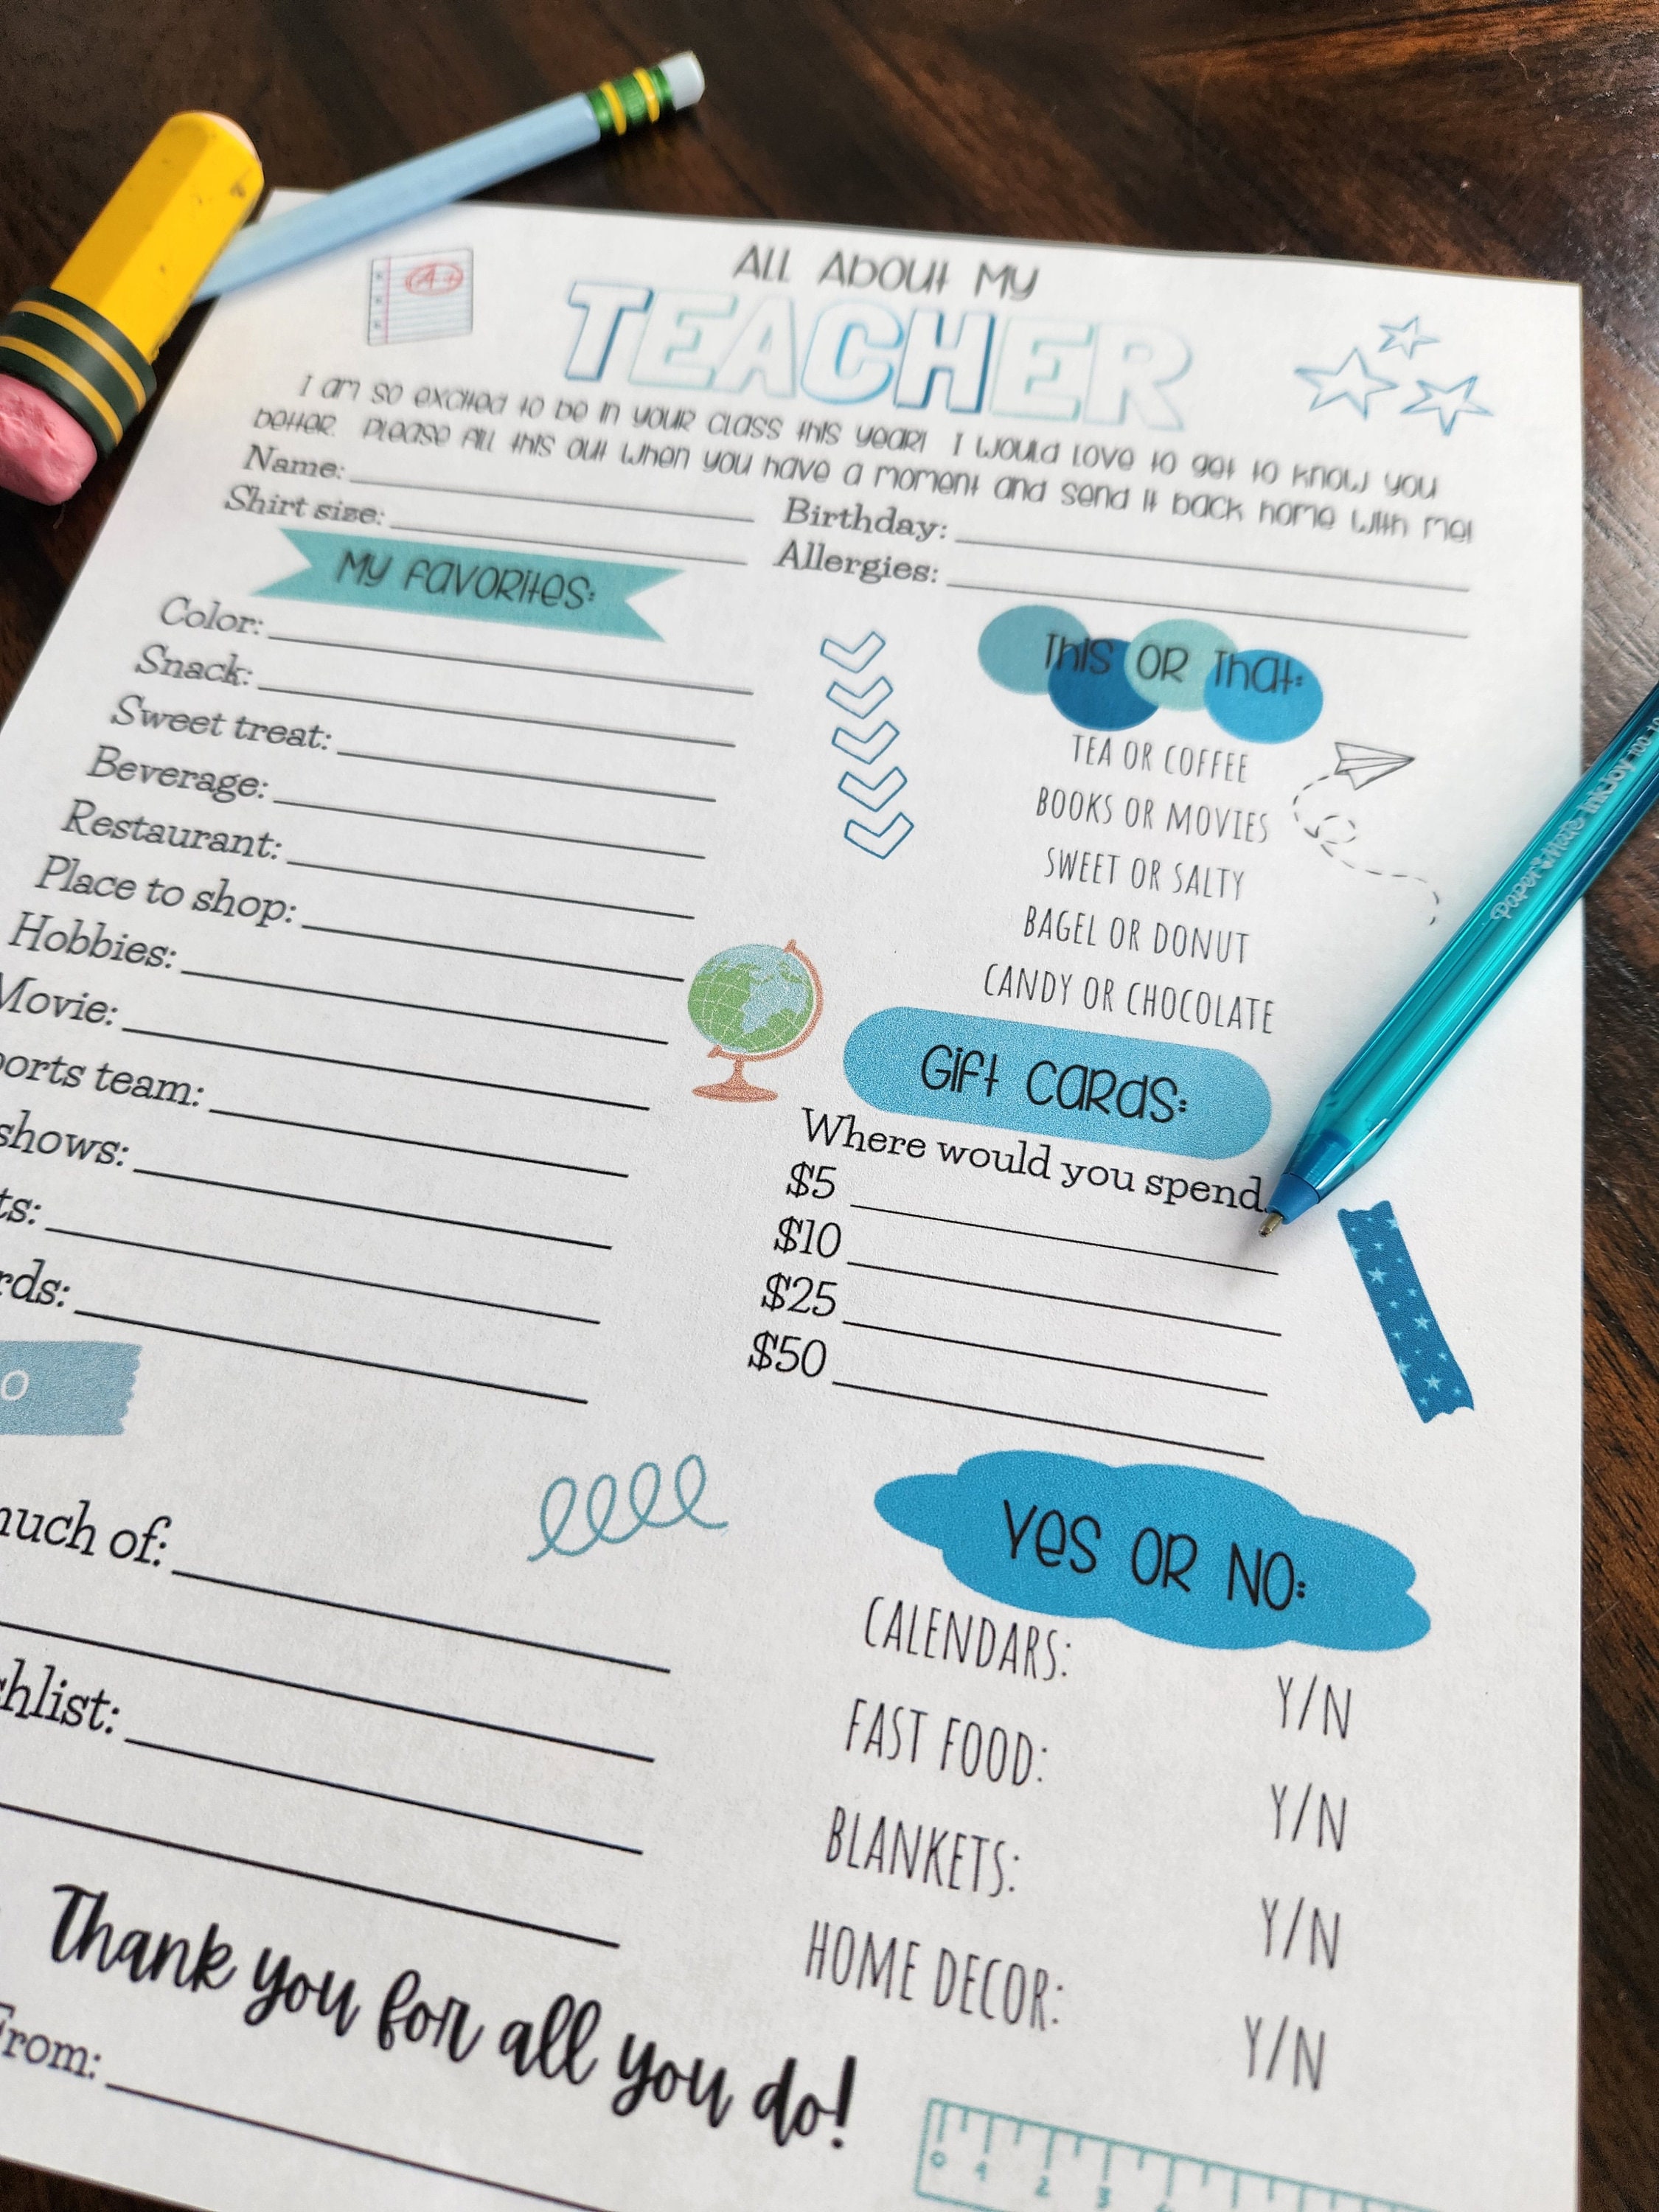 A+
All About My
TEACHER
I am so excited to be in your class this year! I would love to get to know you
better. Please fill this out when you have a moment and send it back home with me!
Name:
Birthday:
Shirt size:
Allergies:
My Favorites:
Color:
Snack:
Sweet treat:
Beverage:
Restaurant:
Place to shop:
Hobbies:
Movie:
orts team:
shows:
ts:
rds:
This or That:
TEA OR COFFEE
BOOKS OR MOVIES
SWEET OR SALTY
BAGEL OR DONUT
CANDY OR CHOCOLATE
Gift Cards:
Where would you spend
$5
$10
$25
$50
o
much of:
hlist:
Yes or No:
CALENDARS: Y/N
FAST FOOD: Y/N
BLANKETS: Y/N
HOME DECOR: Y/N
Thank you for all you do!
From:
0 1 2 3
Paper Mate InkJoy 100